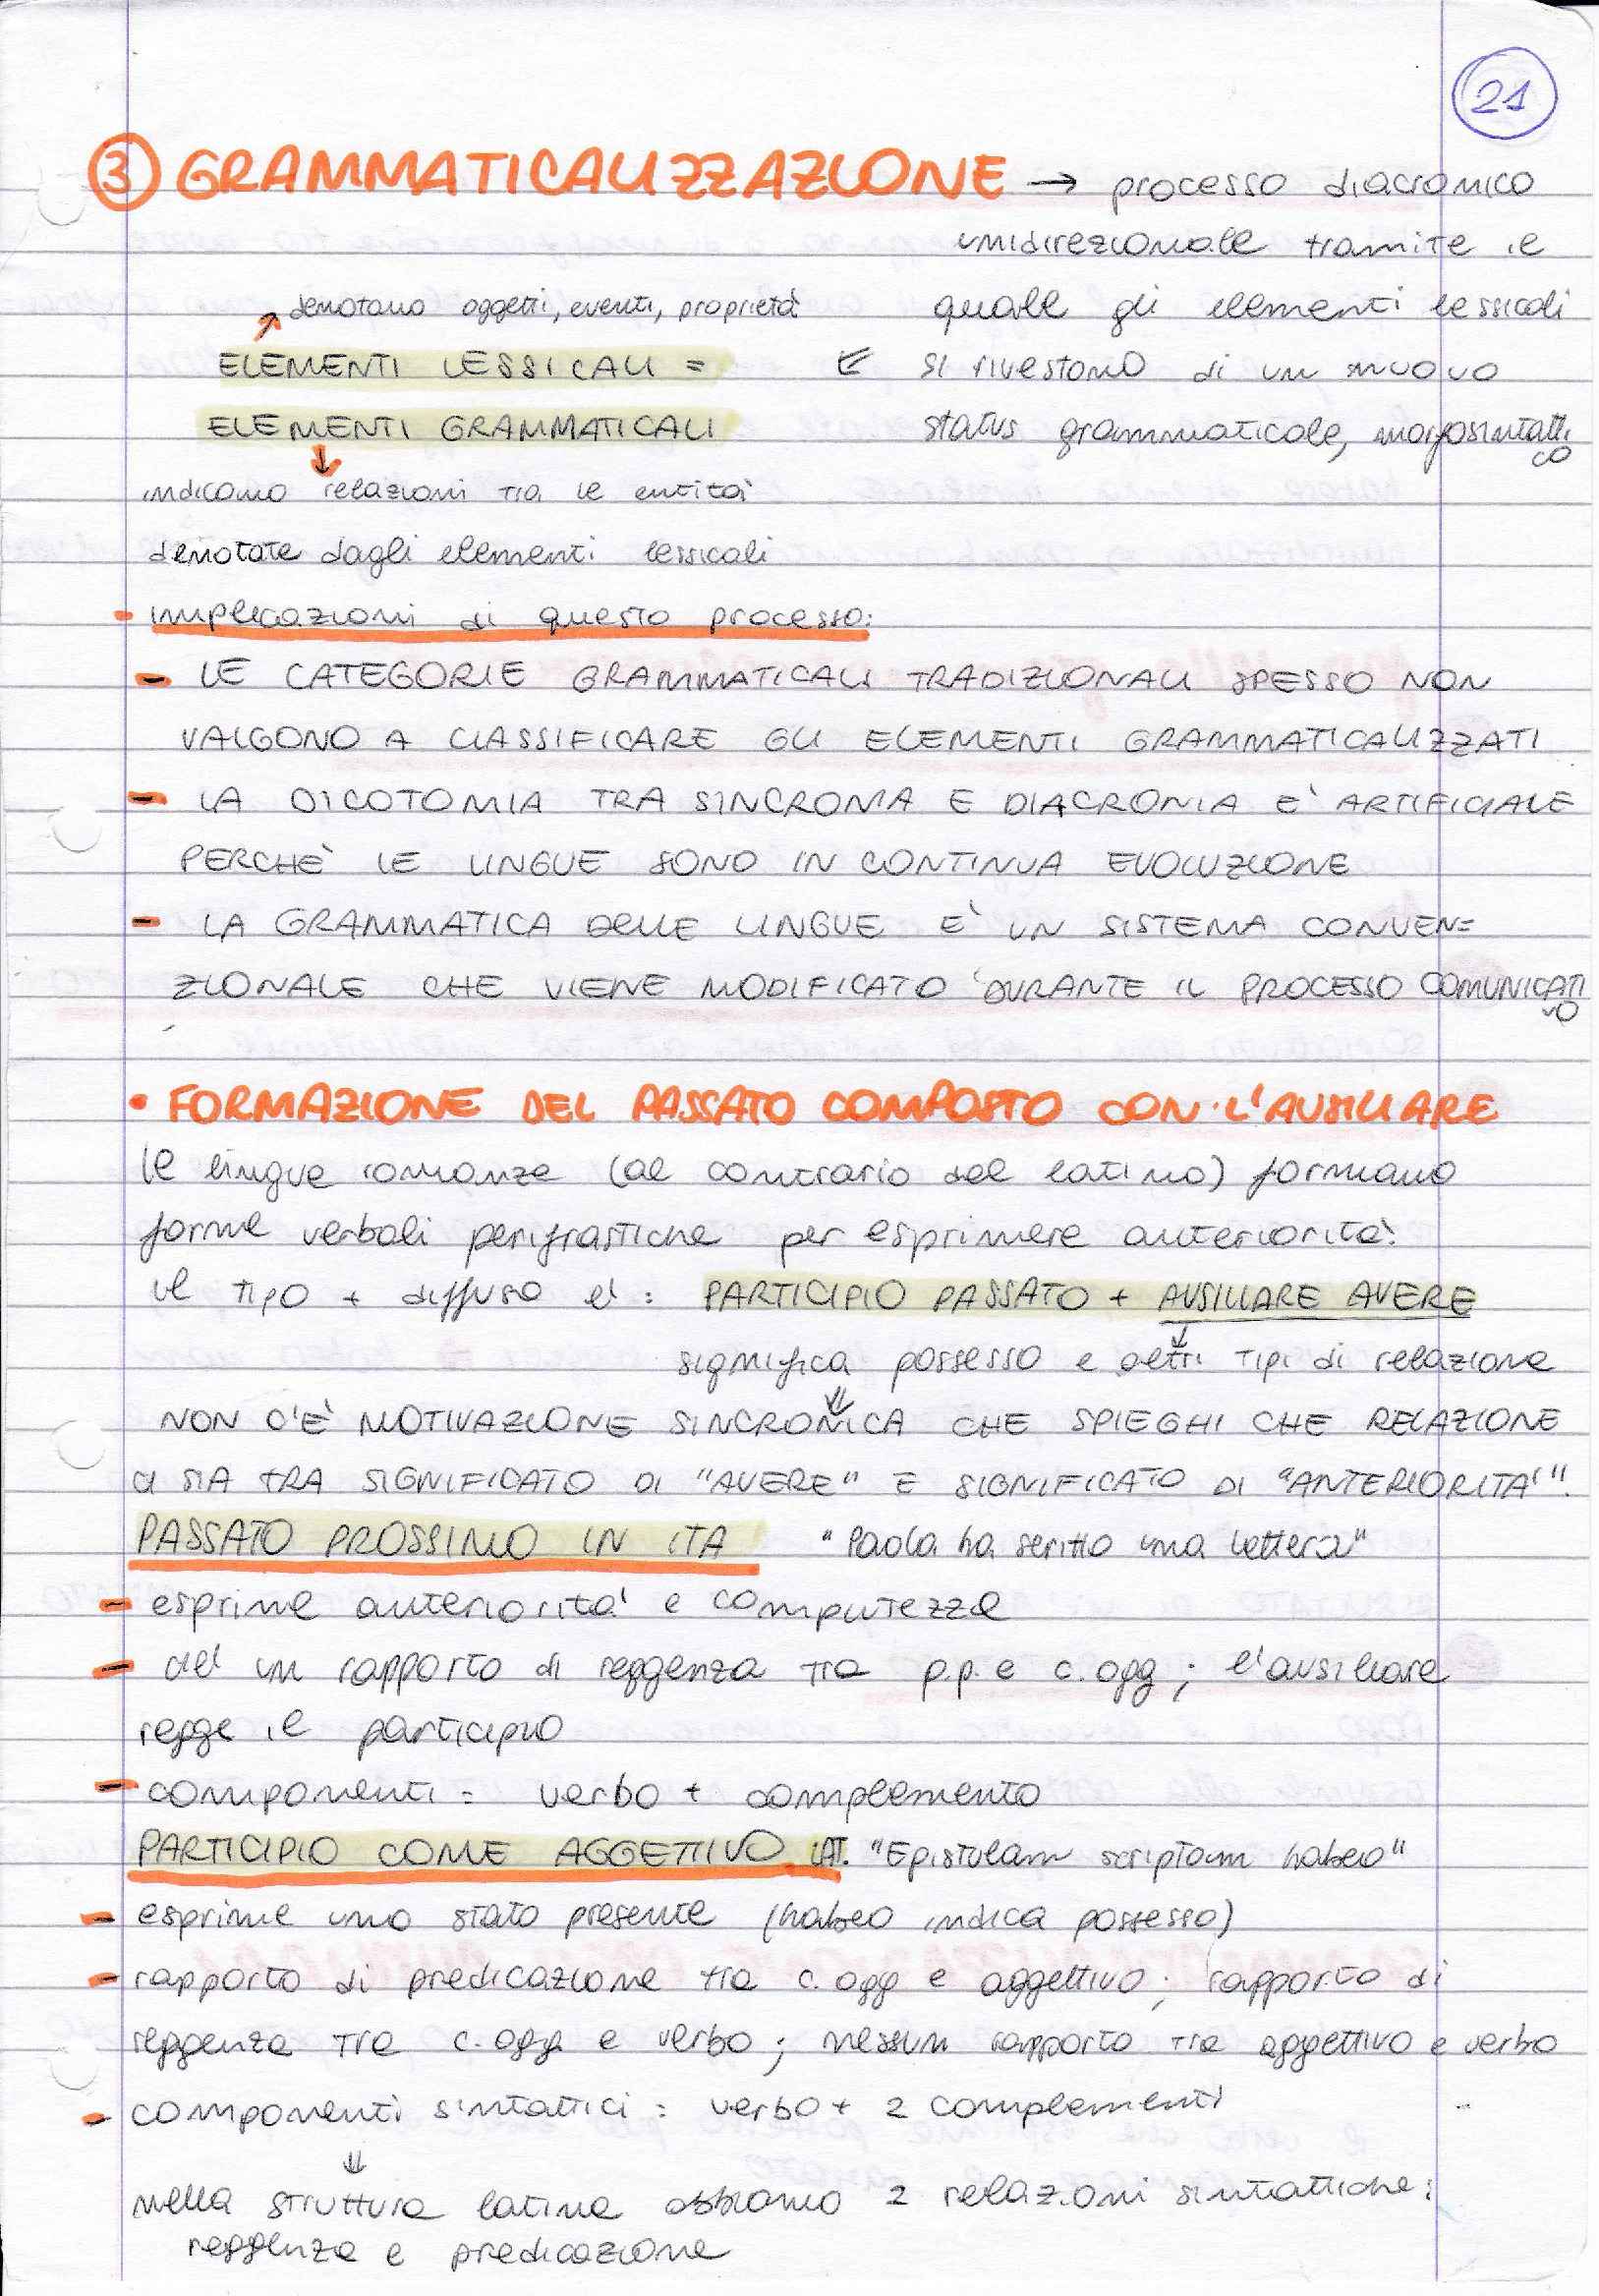 21
③ GRAMMATICALIZZAZIONE → processo diacronico
unidirezionale tramite il
quale gli elementi lessicali
si rivestono di un nuovo
status grammaticale, morfosintattico
↗ denotano oggetti, eventi, proprietà
ELEMENTI LESSICALI = ⇐
ELEMENTI GRAMMATICALI
↓
indicano relazioni tra le entità
denotate dagli elementi lessicali
- implicazioni di questo processo:
- LE CATEGORIE GRAMMATICALI TRADIZIONALI SPESSO NON
VALGONO A CLASSIFICARE GLI ELEMENTI GRAMMATICALIZZATI
- LA DICOTOMIA TRA SINCRONIA E DIACRONIA E' ARTIFICIALE
PERCHÈ LE LINGUE SONO IN CONTINUA EVOLUZIONE
- LA GRAMMATICA DELLE LINGUE E' UN SISTEMA CONVEN=
ZIONALE CHE VIENE MODIFICATO DURANTE IL PROCESSO COMUNICATIVO
• FORMAZIONE DEL PASSATO COMPOSTO CON L'AUSILIARE
le lingue romanze (al contrario del latino) formano
forme verbali perifrastiche per esprimere anteriorità:
il tipo + diffuso e' : PARTICIPIO PASSATO + AUSILIARE AVERE
↓
significa possesso e altri tipi di relazione
⇓
NON C'E' MOTIVAZIONE SINCRONICA CHE SPIEGHI CHE RELAZIONE
CI SIA TRA SIGNIFICATO DI "AVERE" E SIGNIFICATO DI "ANTERIORITA'".
PASSATO PROSSIMO IN ITA "Paola ha scritto una lettera"
- esprime anteriorita' e compiutezza
- c'e' un rapporto di reggenza tra p.p. e c. ogg ; l'ausiliare
regge il participio
- componenti = verbo + complemento
PARTICIPIO COME AGGETTIVO LAT. "Epistulam scriptam habeo"
- esprime uno stato presente (habeo indica possesso)
- rapporto di predicazione tra c. ogg e aggettivo ; rapporto di
reggenza tra c. ogg e verbo ; nessun rapporto tra aggettivo e verbo
- componenti sintattici = verbo + 2 complementi
⇓
nella struttura latina abbiamo 2 relazioni sintattiche:
reggenza e predicazione